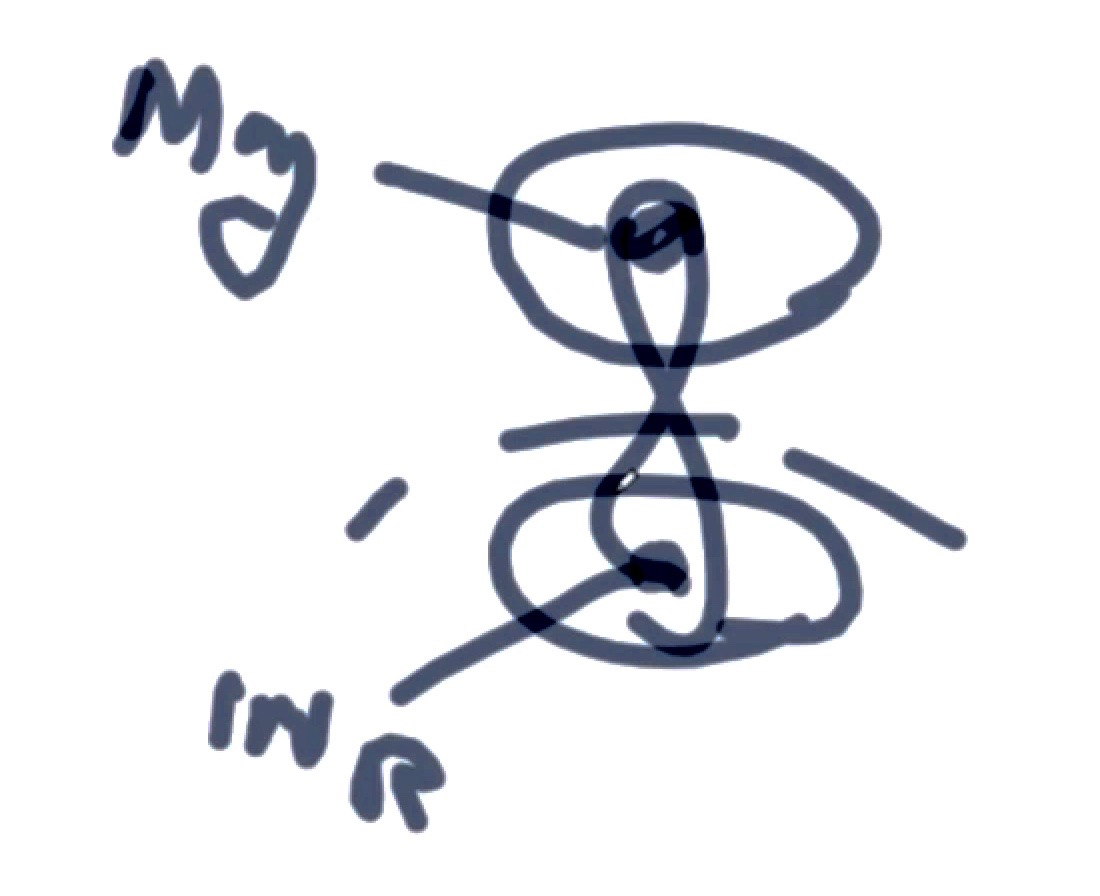 Mg
INR